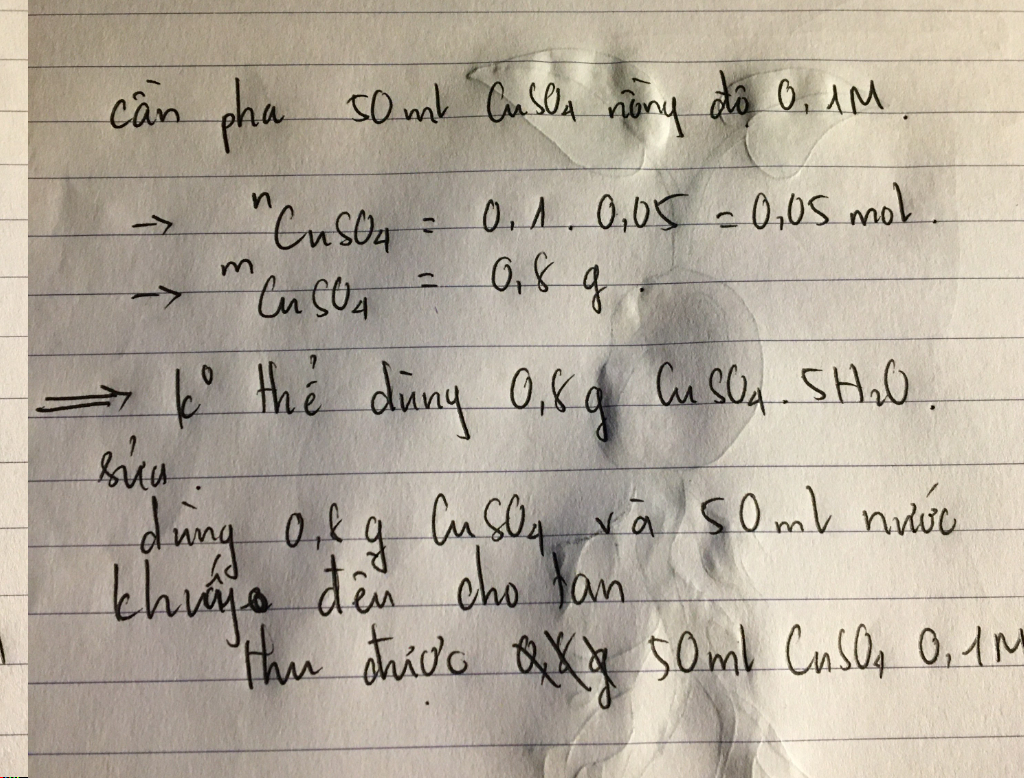 cần pha 50ml CuSO4 nồng độ 0,1M.
→ nCuSO4 = 0,1. 0,05 = 0,05 mol.
→ mCuSO4 = 0,8 g.
⟹ k° thể dùng 0,8g CuSO4. 5H2O.
sửa.
dùng 0,8g CuSO4 và 50ml nước
khuấy đều cho tan
thu được 50ml CuSO4 0,1M